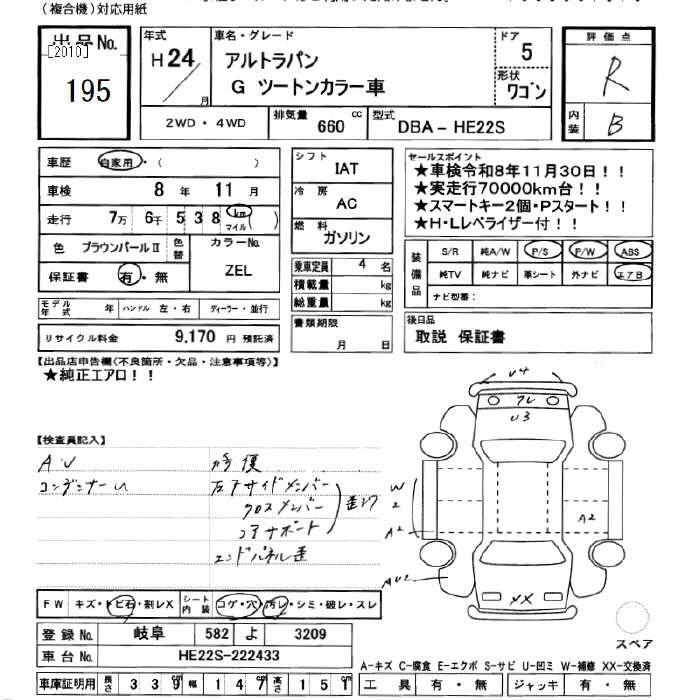 (複合機)対応用紙
出品No.
[2010]
195
年式
H24
月
車名・グレード
アルトラパン
G ツートンカラー車
ドア
5
形状
ワゴン
評価点
R
内装
B
2WD・4WD
排気量 660 cc
型式 DBA-HE22S
車歴 自家用・( )
車検 8 年 11 月
走行 7万 6千 5 3 8 km マイル
色 ブラウンパールⅡ
色替
カラーNo.
ZEL
保証書 有・無
シフト
IAT
冷房
AC
燃料
ガソリン
乗車定員 4 名
積載量 kg
総重量 kg
セールスポイント
★車検令和8年11月30日!!
★実走行70000km台!!
★スマートキー2個・Pスタート!!
★H・Lレベライザー付!!
装備品
S/R 純A/W P/S P/W ABS
純TV 純ナビ 革シート 外ナビ エアB
ナビ型番:
モデル年式 年 ハンドル 左・右 ディーラー・並行
リサイクル料金 9,170 円 預託済
書類期限
月 日
後日品
取説 保証書
【出品店申告欄(不良箇所・欠品・注意事項等)】
★純正エアロ!!
【検査員記入】
A・U
コンデンナーU
修復
左フサイドメンバー
クロスメンバー
コアサポート
歪ジク
エンドパネル歪
U4
フレ
U3
W
2
A2
A2
AU2
XX
FW キズ・トビ石・割レX
シート内装 コゲ・穴・汚レ・シミ・破レ・スレ
登録No. 岐阜 582 よ 3209
車台No. HE22S-222433
車庫証明用 長さ 339 cm 幅 147 cm 高さ 151 cm
スペア
A-キズ C-腐食 E-エクボ S-サビ U-凹ミ W-補修 XX-交換済
工具 有・無 ジャッキ 有・無